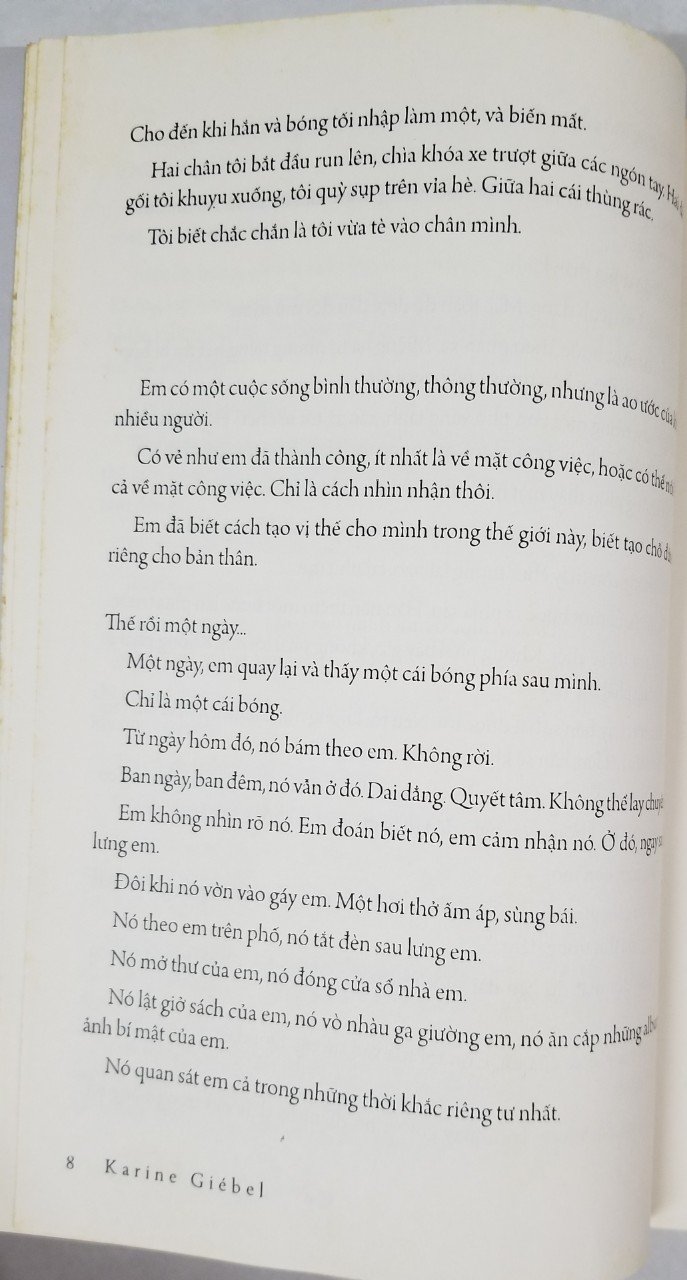 Cho đến khi hắn và bóng tối nhập làm một, và biến mất.
Hai chân tôi bắt đầu run lên, chìa khóa xe trượt giữa các ngón tay. Hai
gối tôi khuỵu xuống, tôi quỳ sụp trên vỉa hè. Giữa hai cái thùng rác.
Tôi biết chắc chắn là tôi vừa tè vào chân mình.
Em có một cuộc sống bình thường, thông thường, nhưng là ao ước của
nhiều người.
Có vẻ như em đã thành công, ít nhất là về mặt công việc, hoặc có thể
cả về mặt công việc. Chỉ là cách nhìn nhận thôi.
Em đã biết cách tạo vị thế cho mình trong thế giới này, biết tạo chỗ
riêng cho bản thân.
Thế rồi một ngày...
Một ngày, em quay lại và thấy một cái bóng phía sau mình.
Chỉ là một cái bóng.
Từ ngày hôm đó, nó bám theo em. Không rời.
Ban ngày, ban đêm, nó vẫn ở đó. Dai dẳng. Quyết tâm. Không thể lay
Em không nhìn rõ nó. Em đoán biết nó, em cảm nhận nó. Ở đó, ngay
lưng em.
Đôi khi nó vờn vào gáy em. Một hơi thở ấm áp, sùng bái.
Nó theo em trên phố, nó tắt đèn sau lưng em.
Nó mở thư của em, nó đóng cửa sổ nhà em.
Nó lật giở sách của em, nó vò nhàu ga giường em, nó ăn cắp những
ảnh bí mật của em.
Nó quan sát em cả trong những thời khắc riêng tư nhất.
8 Karine Giébel